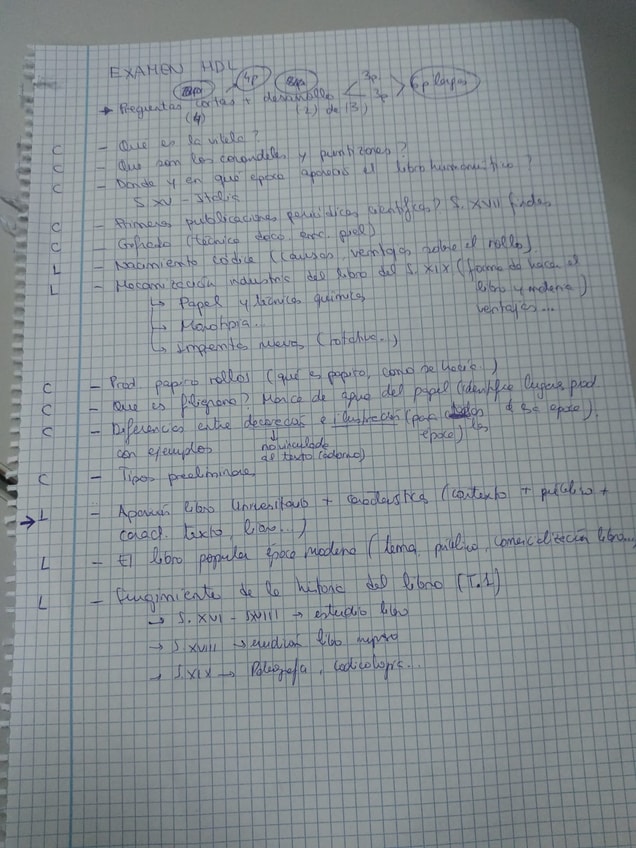 EXAMEN HDL
4p 3p
→ Preguntas cortas + desarrollo < 3p > 6p largas
(4) (2) de (3)
C - Que es la vitela?
C - Que son los corondeles y puntizones?
C - Donde y en que epoca aparece el libro humanistico?
S. XV - Italia
C - Primeras publicaciones periodicas cientificas? S. XVII finales
C - Gofrado (técnica deco enc. piel)
L - Nacimiento códice (causas, ventajas sobre el rollo).
L - Mecanización industria del libro del S. XIX (forma de hacer el
libro y moderna)
↳ Papel y técnicas químicas ventajas...
↳ Monotipia.
↳ Imprentas nuevas (rotativa..)
C - Prod. papiro rollos (qué es papiro, como se hacía..)
C - Que es filigrana? Marca de agua del papel (identifica lugar, prod.
C - Diferencias entre decorada e ilustración (para de esa época),
con ejemplos no vinculado época) los
al texto (adorno)
C - Tipos preeliminares
→ L - Aparición libro Universitario + características (contexto + público +
caract. texto, libro...)
L - El libro popular época moderna (tema, público, comercialización libro...
L - Surgimiento de la historia del libro (T.1)
→ S. XVI - XVIII → estudio libro
→ S. XVIII → erudición libro impreso
→ S. XIX → Paleografía, codicología...